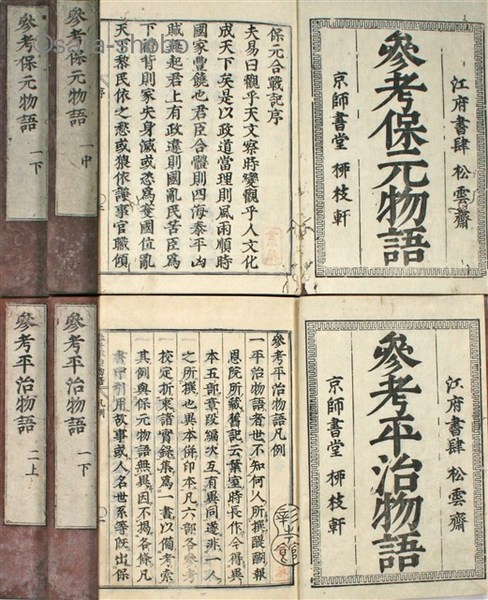 Osaka-shobo
江府書肆 松雲齋
參考保元物語
京師書堂 栁枝軒
保元合戰記序
夫易曰觀乎天文察時變觀乎人文化
成天下矣是以政道當理則風雨順時
國家豐饒也君臣合體則四海泰平凶
賊無起君上有政違則國亂民苦臣爲
下命背則家失身滅或悉爲蠻國位亂
天下黎民依之愁或猥依謹事官職傾
序
參考保元物語 一中
參考保元物語 一下
江府書肆 松雲齋
參考平治物語
京師書堂 栁枝軒
參考平治物語凡例
一平治物語者世不知何人所撰醍醐報
恩院所藏舊記云葉室時長作今得異
本五部章段編次互有異同遂非一人
之所撰也與本併印本凡六部各參考
校定折衷諸實錄集爲一書以備考索
其例與保元物語無異因不揭各條凡
書中引用故事或人名世系等旣出保
參考平治物語 一下
參考平治物語 二上